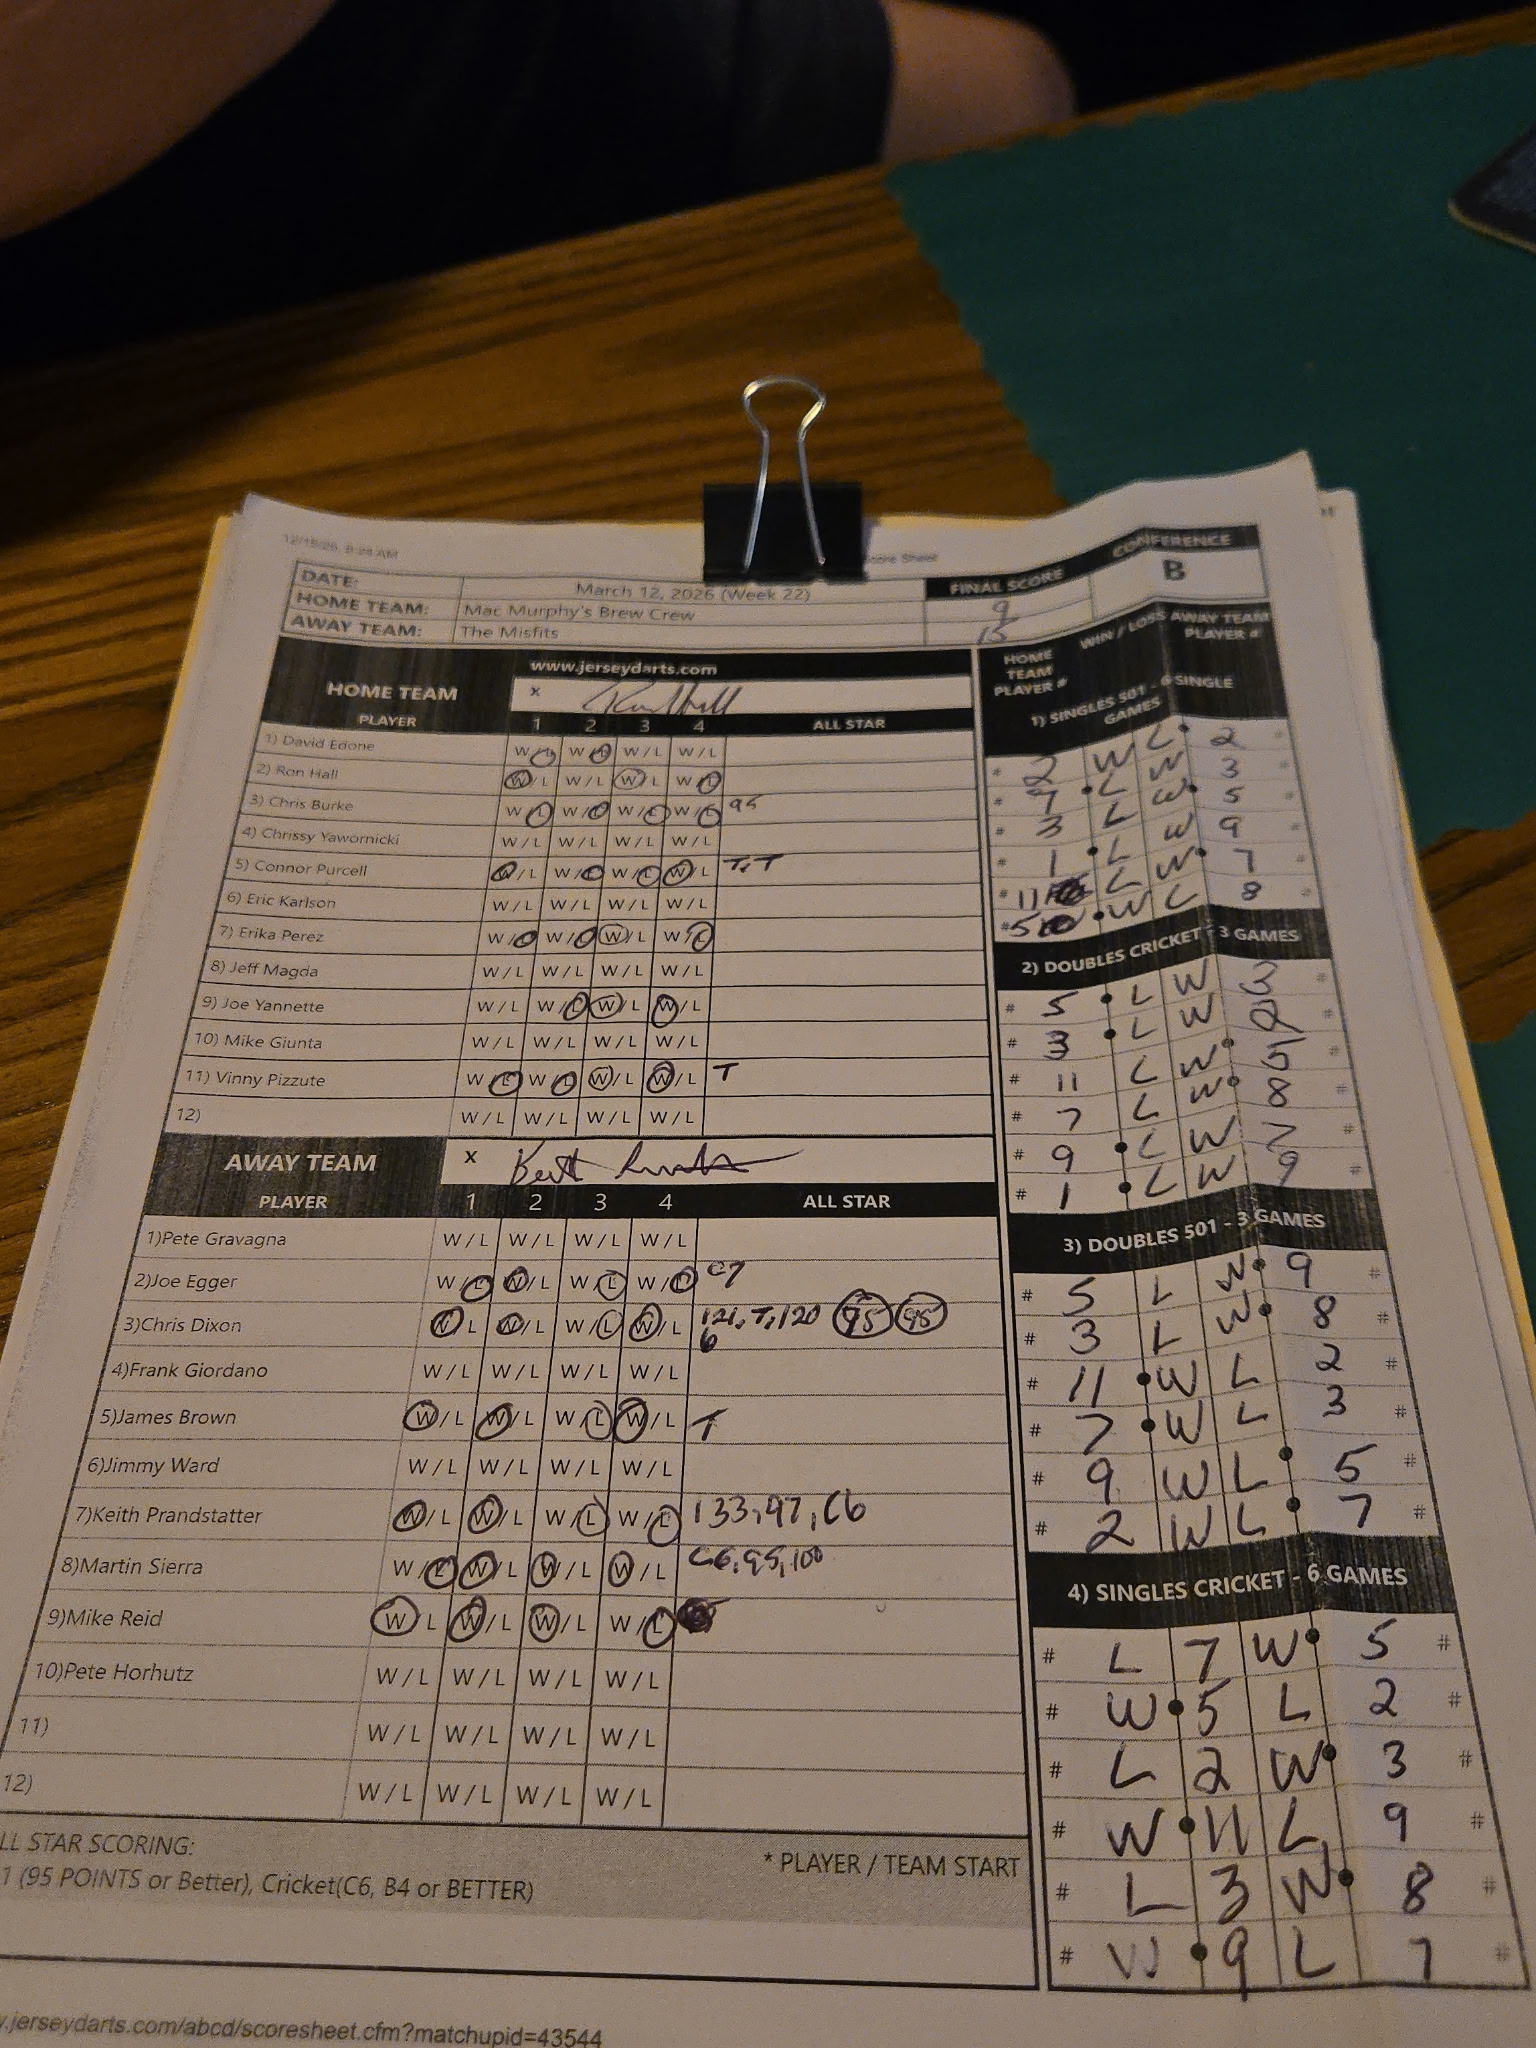 12/15/25, 9:28 AM
Score Sheet
DATE: March 12, 2026 (Week 22) FINAL SCORE CONFERENCE
HOME TEAM: Mac Murphy's Brew Crew 9 B
AWAY TEAM: The Misfits 15
www.jerseydarts.com
HOME TEAM x
PLAYER 1 2 3 4 ALL STAR
1) David Edone W/L W/L W/L W/L
2) Ron Hall W/L W/L W/L W/L
3) Chris Burke W/L W/L W/L W/L 95
4) Chrissy Yawornicki W/L W/L W/L W/L
5) Connor Purcell W/L W/L W/L W/L T, T
6) Eric Karlson W/L W/L W/L W/L
7) Erika Perez W/L W/L W/L W/L
8) Jeff Magda W/L W/L W/L W/L
9) Joe Yannette W/L W/L W/L W/L
10) Mike Giunta W/L W/L W/L W/L
11) Vinny Pizzute W/L W/L W/L W/L T
12) W/L W/L W/L W/L
AWAY TEAM x
PLAYER 1 2 3 4 ALL STAR
1)Pete Gravagna W/L W/L W/L W/L
2)Joe Egger W/L W/L W/L W/L C7
3)Chris Dixon W/L W/L W/L W/L 121, T, 120 95 95
6
4)Frank Giordano W/L W/L W/L W/L
5)James Brown W/L W/L W/L W/L T
6)Jimmy Ward W/L W/L W/L W/L
7)Keith Prandstatter W/L W/L W/L W/L 133, 97, C6
8)Martin Sierra W/L W/L W/L W/L C6, 95, 100
9)Mike Reid W/L W/L W/L W/L
10)Pete Horhutz W/L W/L W/L W/L
11) W/L W/L W/L W/L
12) W/L W/L W/L W/L
LL STAR SCORING:
* PLAYER / TEAM START
1 (95 POINTS or Better), Cricket(C6, B4 or BETTER)
HOME TEAM PLAYER # WIN / LOSS AWAY TEAM PLAYER #
1) SINGLES 501 - 6 SINGLE GAMES
# 2 W L 2 #
# 7 L W 3 #
# 3 L W 5 #
# 1 L W 9 #
# 11 L W 7 #
# 5 W L 8 #
2) DOUBLES CRICKET - 3 GAMES
# 5 L W 3 #
# 3 L W 2 #
# 11 L W 5 #
# 7 L W 8 #
# 9 L W 7 #
# 1 L W 9 #
3) DOUBLES 501 - 3 GAMES
# 5 L W 9 #
# 3 L W 8 #
# 11 W L 2 #
# 7 W L 3 #
# 9 W L 5 #
# 2 W L 7 #
4) SINGLES CRICKET - 6 GAMES
# L 7 W 5 #
# W 5 L 2 #
# L 2 W 3 #
# W 11 L 9 #
# L 3 W 8 #
# W 9 L 7 #
w.jerseydarts.com/abcd/scoresheet.cfm?matchupid=43544